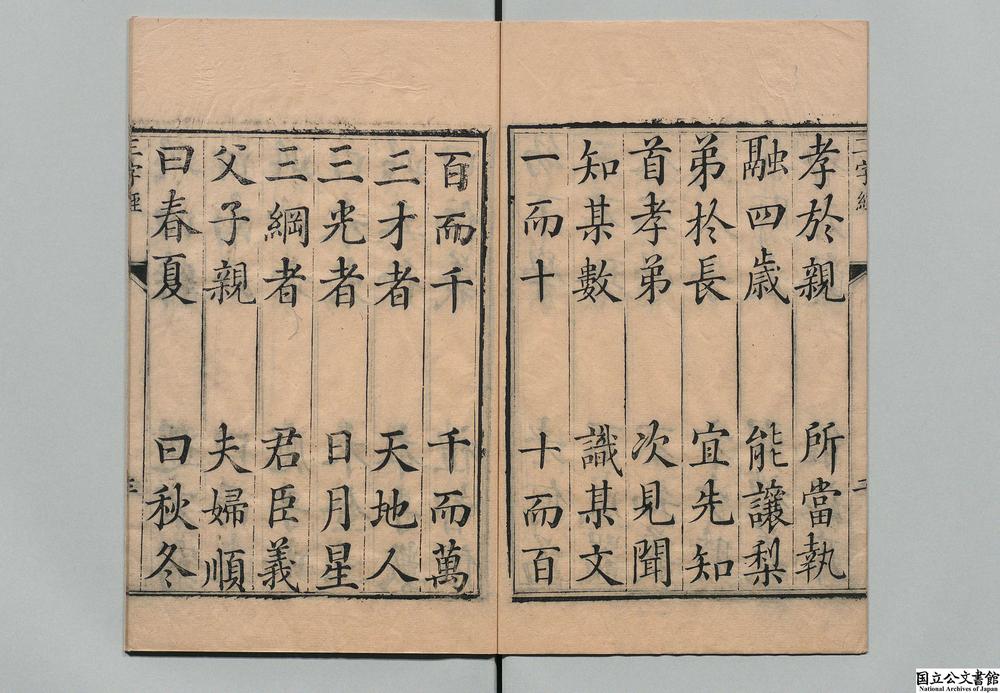 三字經
孝於親 所當執
融四歳 能讓梨
弟於長 宜先知
首孝弟 次見聞
知某數 識某文
一而十 十而百
百而千 千而萬
三才者 天地人
三光者 日月星
三綱者 君臣義
父子親 夫婦順
曰春夏 曰秋冬
三字經
国立公文書館
National Archives of Japan